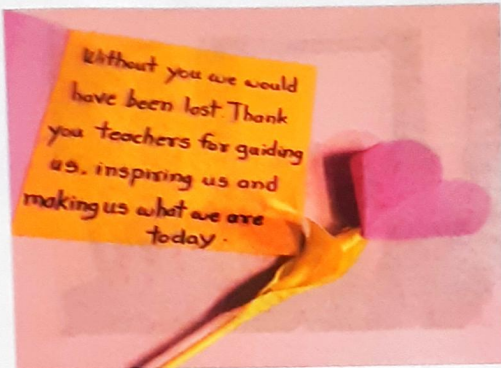 Without you we would
have been lost. Thank
you teachers for guiding
us. inspiring us and
making us what we are
today.